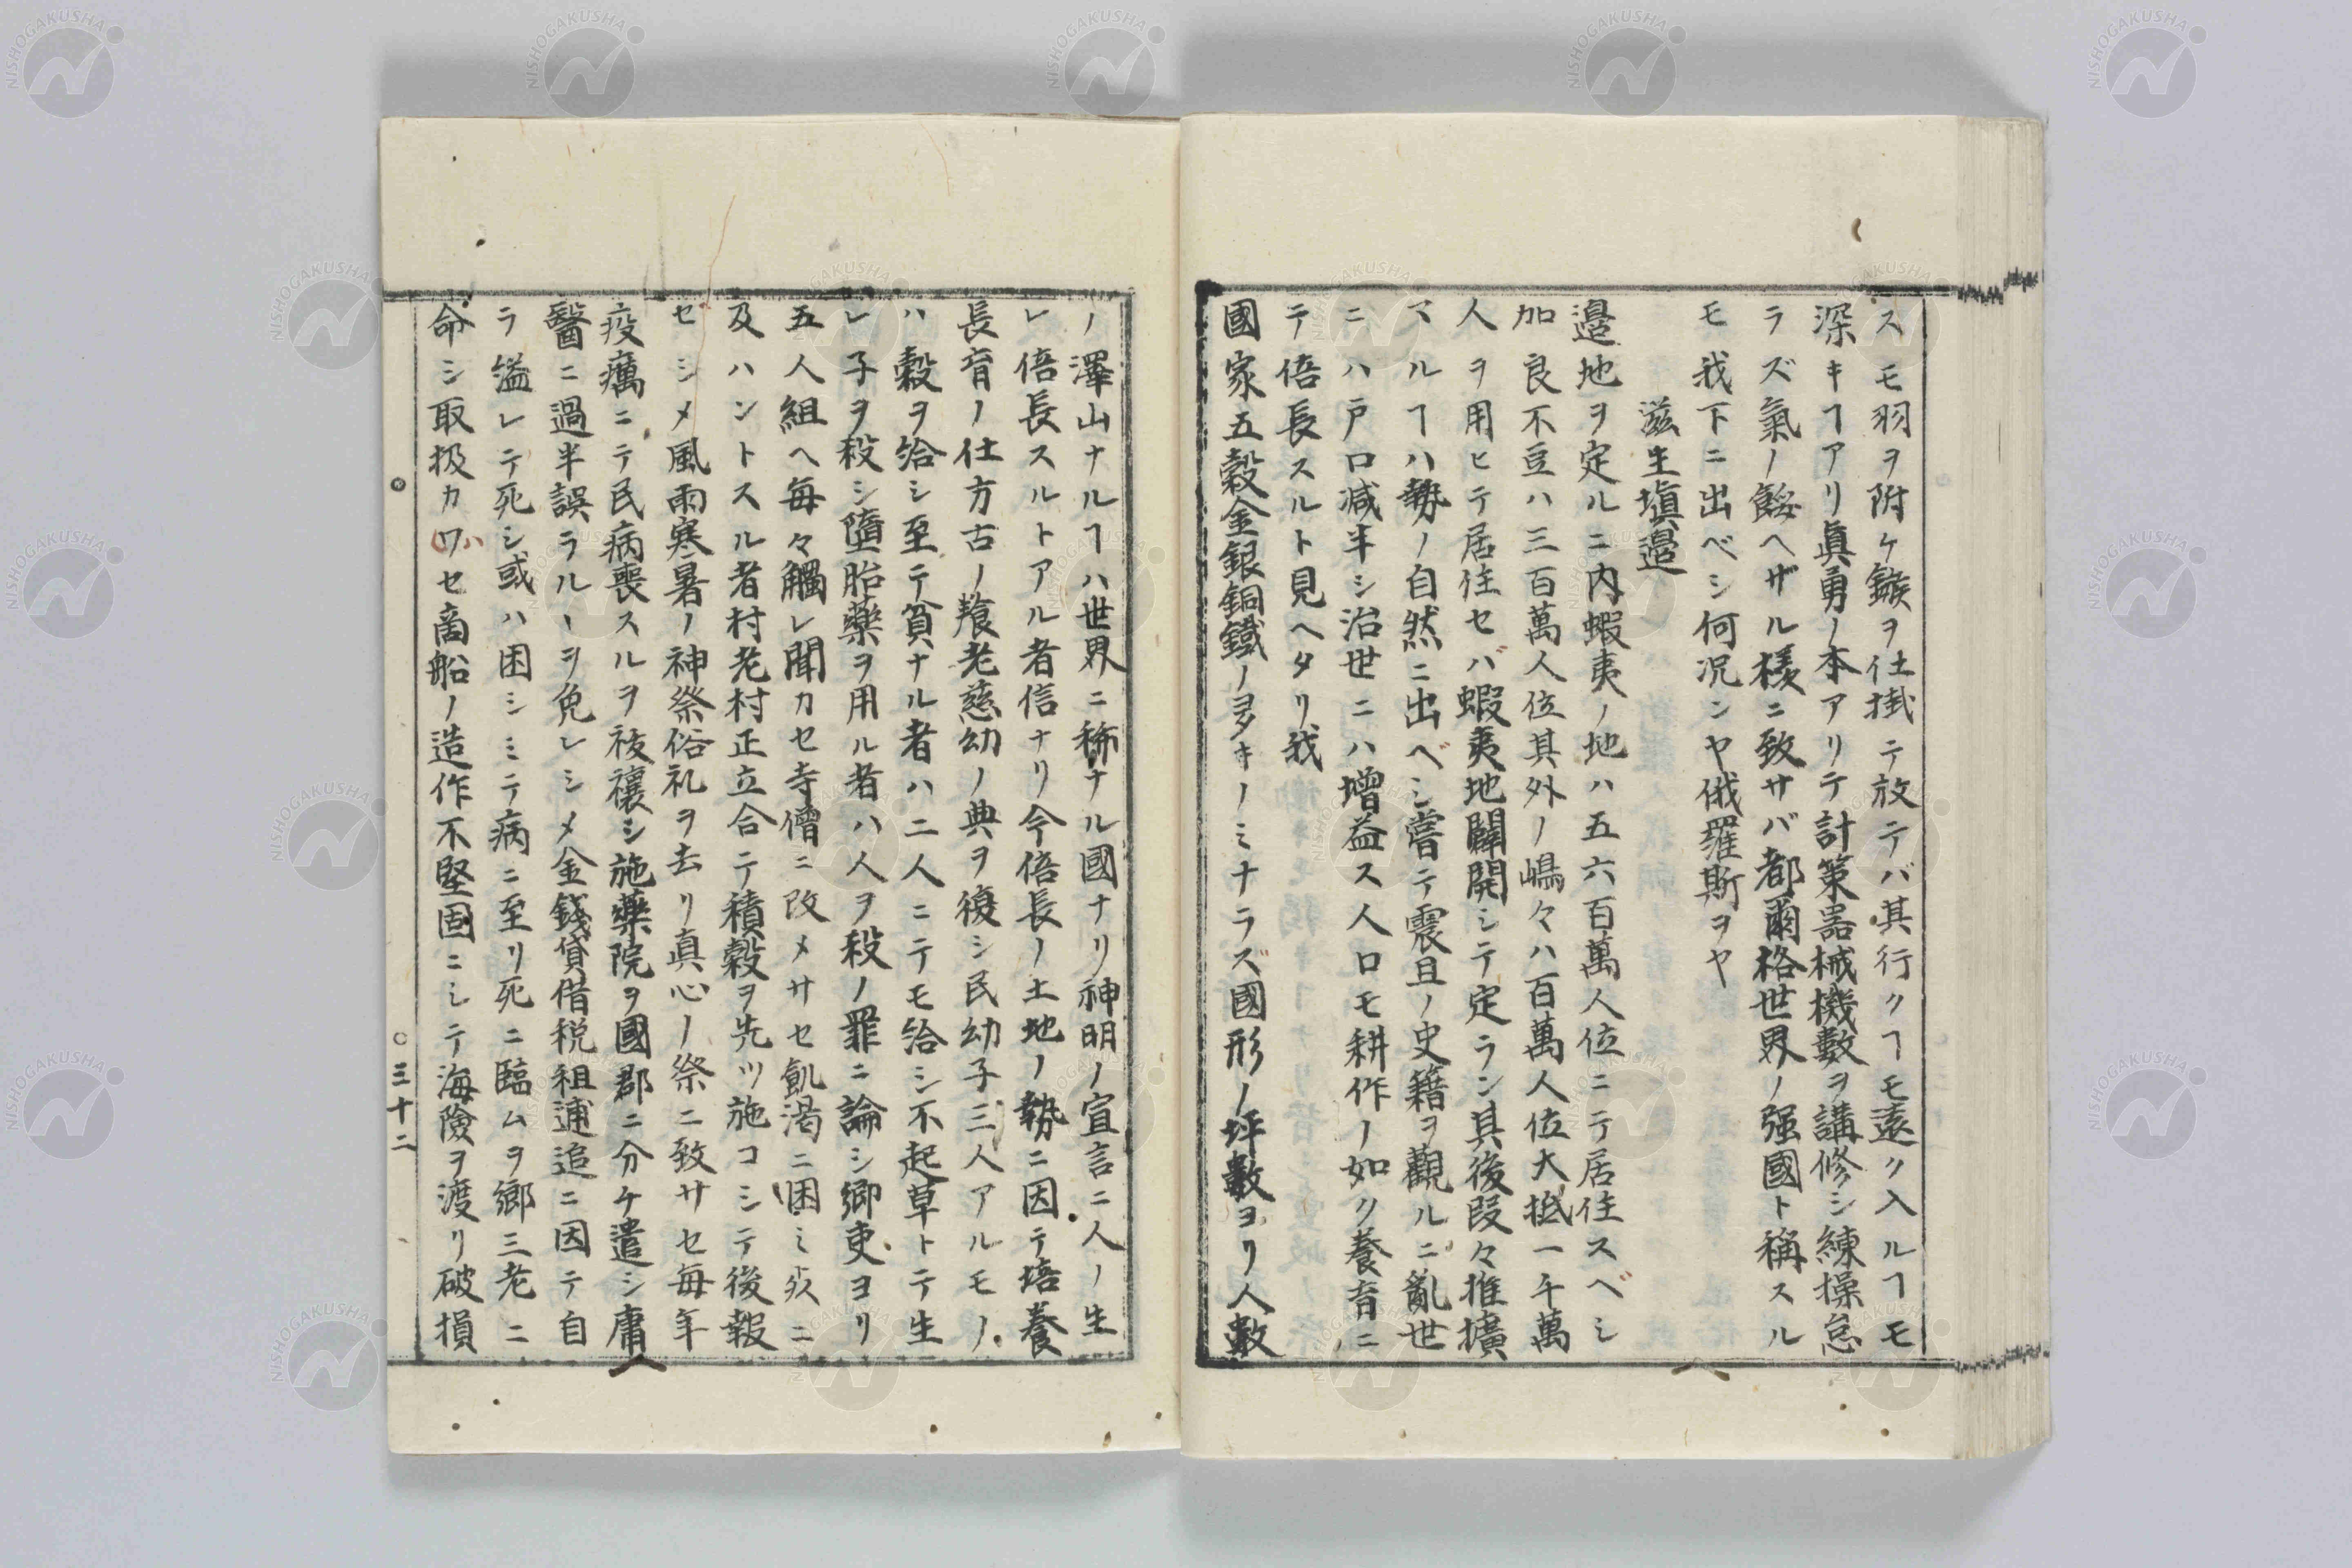 スモ羽ヲ附ケ鏃ヲ仕掛テ放テバ其行クヿモ遠ク入ルヿモ
深キヿアリ眞勇ノ本アリテ計策器械機數ヲ講修シ練操怠
ラズ氣ノ餒ヘザル樣ニ致サバ都爾格世界ノ强國ト稱スル
モ我下ニ出ベシ何况ンヤ俄羅斯ヲヤ
滋生塡邉
邉地ヲ定ルニ内蝦夷ノ地ハ五六百萬人位ニテ居住スベシ
加良不豆ハ三百萬人位其外ノ嶋々ハ百萬人位大抵一千萬
人ヲ用ヒテ居住セバ蝦夷地闢開シテ定ラン其後段々推擴
マルヿハ勢ノ自然ニ出ベシ嘗テ震旦ノ史籍ヲ觀ルニ亂世
ニハ戸口減半シ治世ニハ增益ス人口モ耕作ノ如ク養育ニ
テ倍長スルト見ヘタリ我
國家五穀金銀銅鐵ノ多キノミナラズ國形ノ坪數ヨリ人數
ノ澤山ナルヿハ世界ニ稀ナル國ナリ神明ノ宣言ニ人ノ生
レ倍長スルトアル者信ナリ今倍長ノ土地ノ勢ニ因テ培養
長育ノ仕方古ノ養老慈幼ノ典ヲ復シ民幼子三人アルモノ
ハ穀ヲ給シ至テ貧ナル者ハ二人ニテモ給シ不起草トテ生
レ子ヲ殺シ墮胎藥ヲ用ル者ハ人ヲ殺ノ罪ニ論シ鄕吏ヨリ
五人組ヘ每々觸レ聞カセ寺僧ニ改メサセ飢渇ニ困ミ災ニ
及ハントスル者村老村正立合テ積穀ヲ先ツ施コシテ後報
セシメ風雨寒暑ノ神祭俗礼ヲ去リ真心ノ祭ニ致サセ每年
疫癘ニテ民病喪スルヲ祓禳シ施藥院ヲ國郡ニ分ケ遣シ庸
醫ニ過半誤ラルヽヲ免レシメ金錢貸借税租逋追ニ因テ自
ラ縊レテ死シ或ハ困シミテ病ニ至リ死ニ臨ムヲ鄕三老ニ
命シ取扱カハセ商船ノ造作不堅固ニシテ海險ヲ渡リ破損
三十二
NISHOGAKUSHA